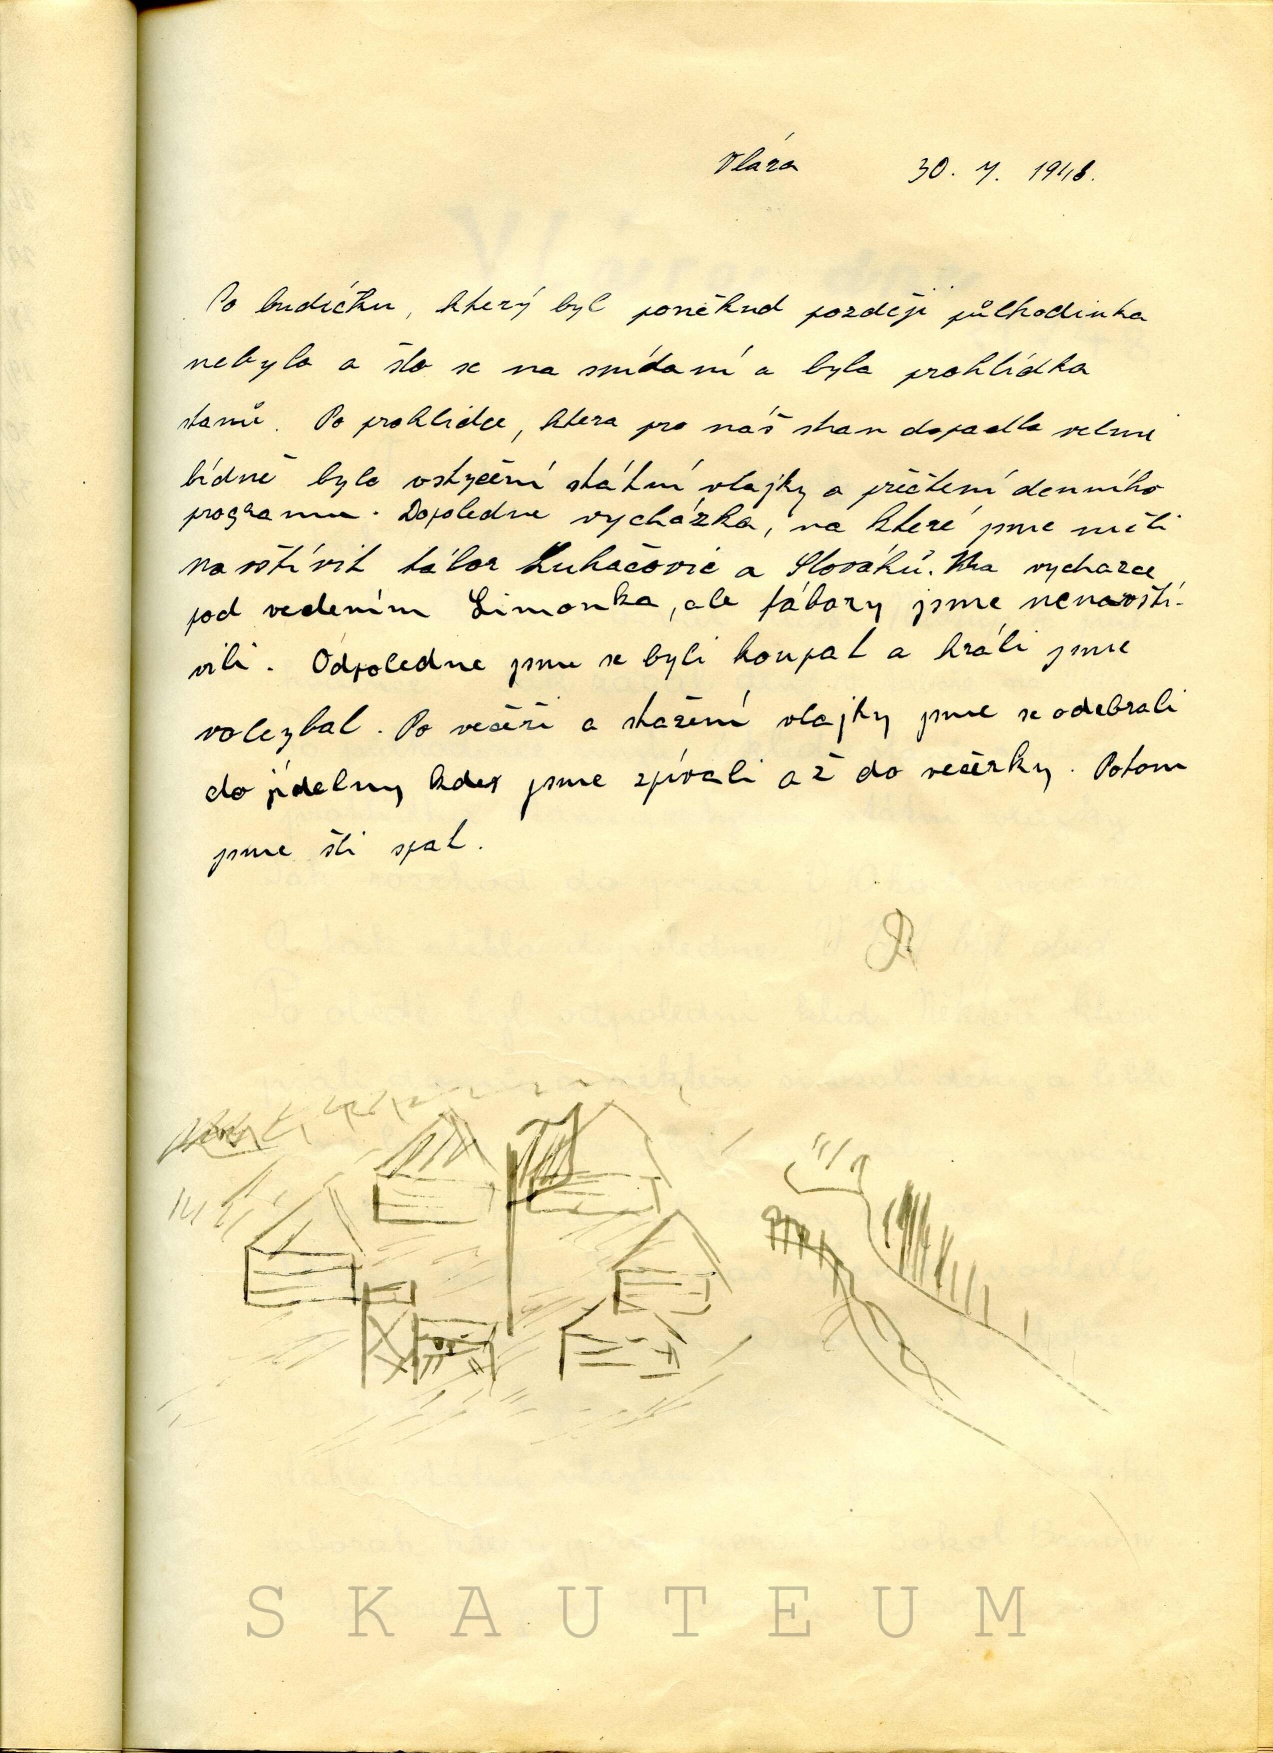 Vlára 30. 7. 1948.
Po budíčku, který byl poněkud později půlhodinka
nebyla a šlo se na snídani a byla prohlídka
stanů. Po prohlídce, ktera pro náš stan dopadla velmi
bídně bylo vstyčení státní vlajky a přečtení denního
programu. Dopoledne vycházka, na které jsme měli
navštívit tábor Luhačovic a Slováků. Na vycházce
pod vedením Limonka, ale tábory jsme nenavští-
vili. Odpoledne jsme se byli koupat a hráli jsme
voleybal. Po večeři a stažení vlajky jsme se odebrali
do jídelny kde jsme zpívali až do večerky. Potom
jsme šli spat.
R
SKAUTEUM